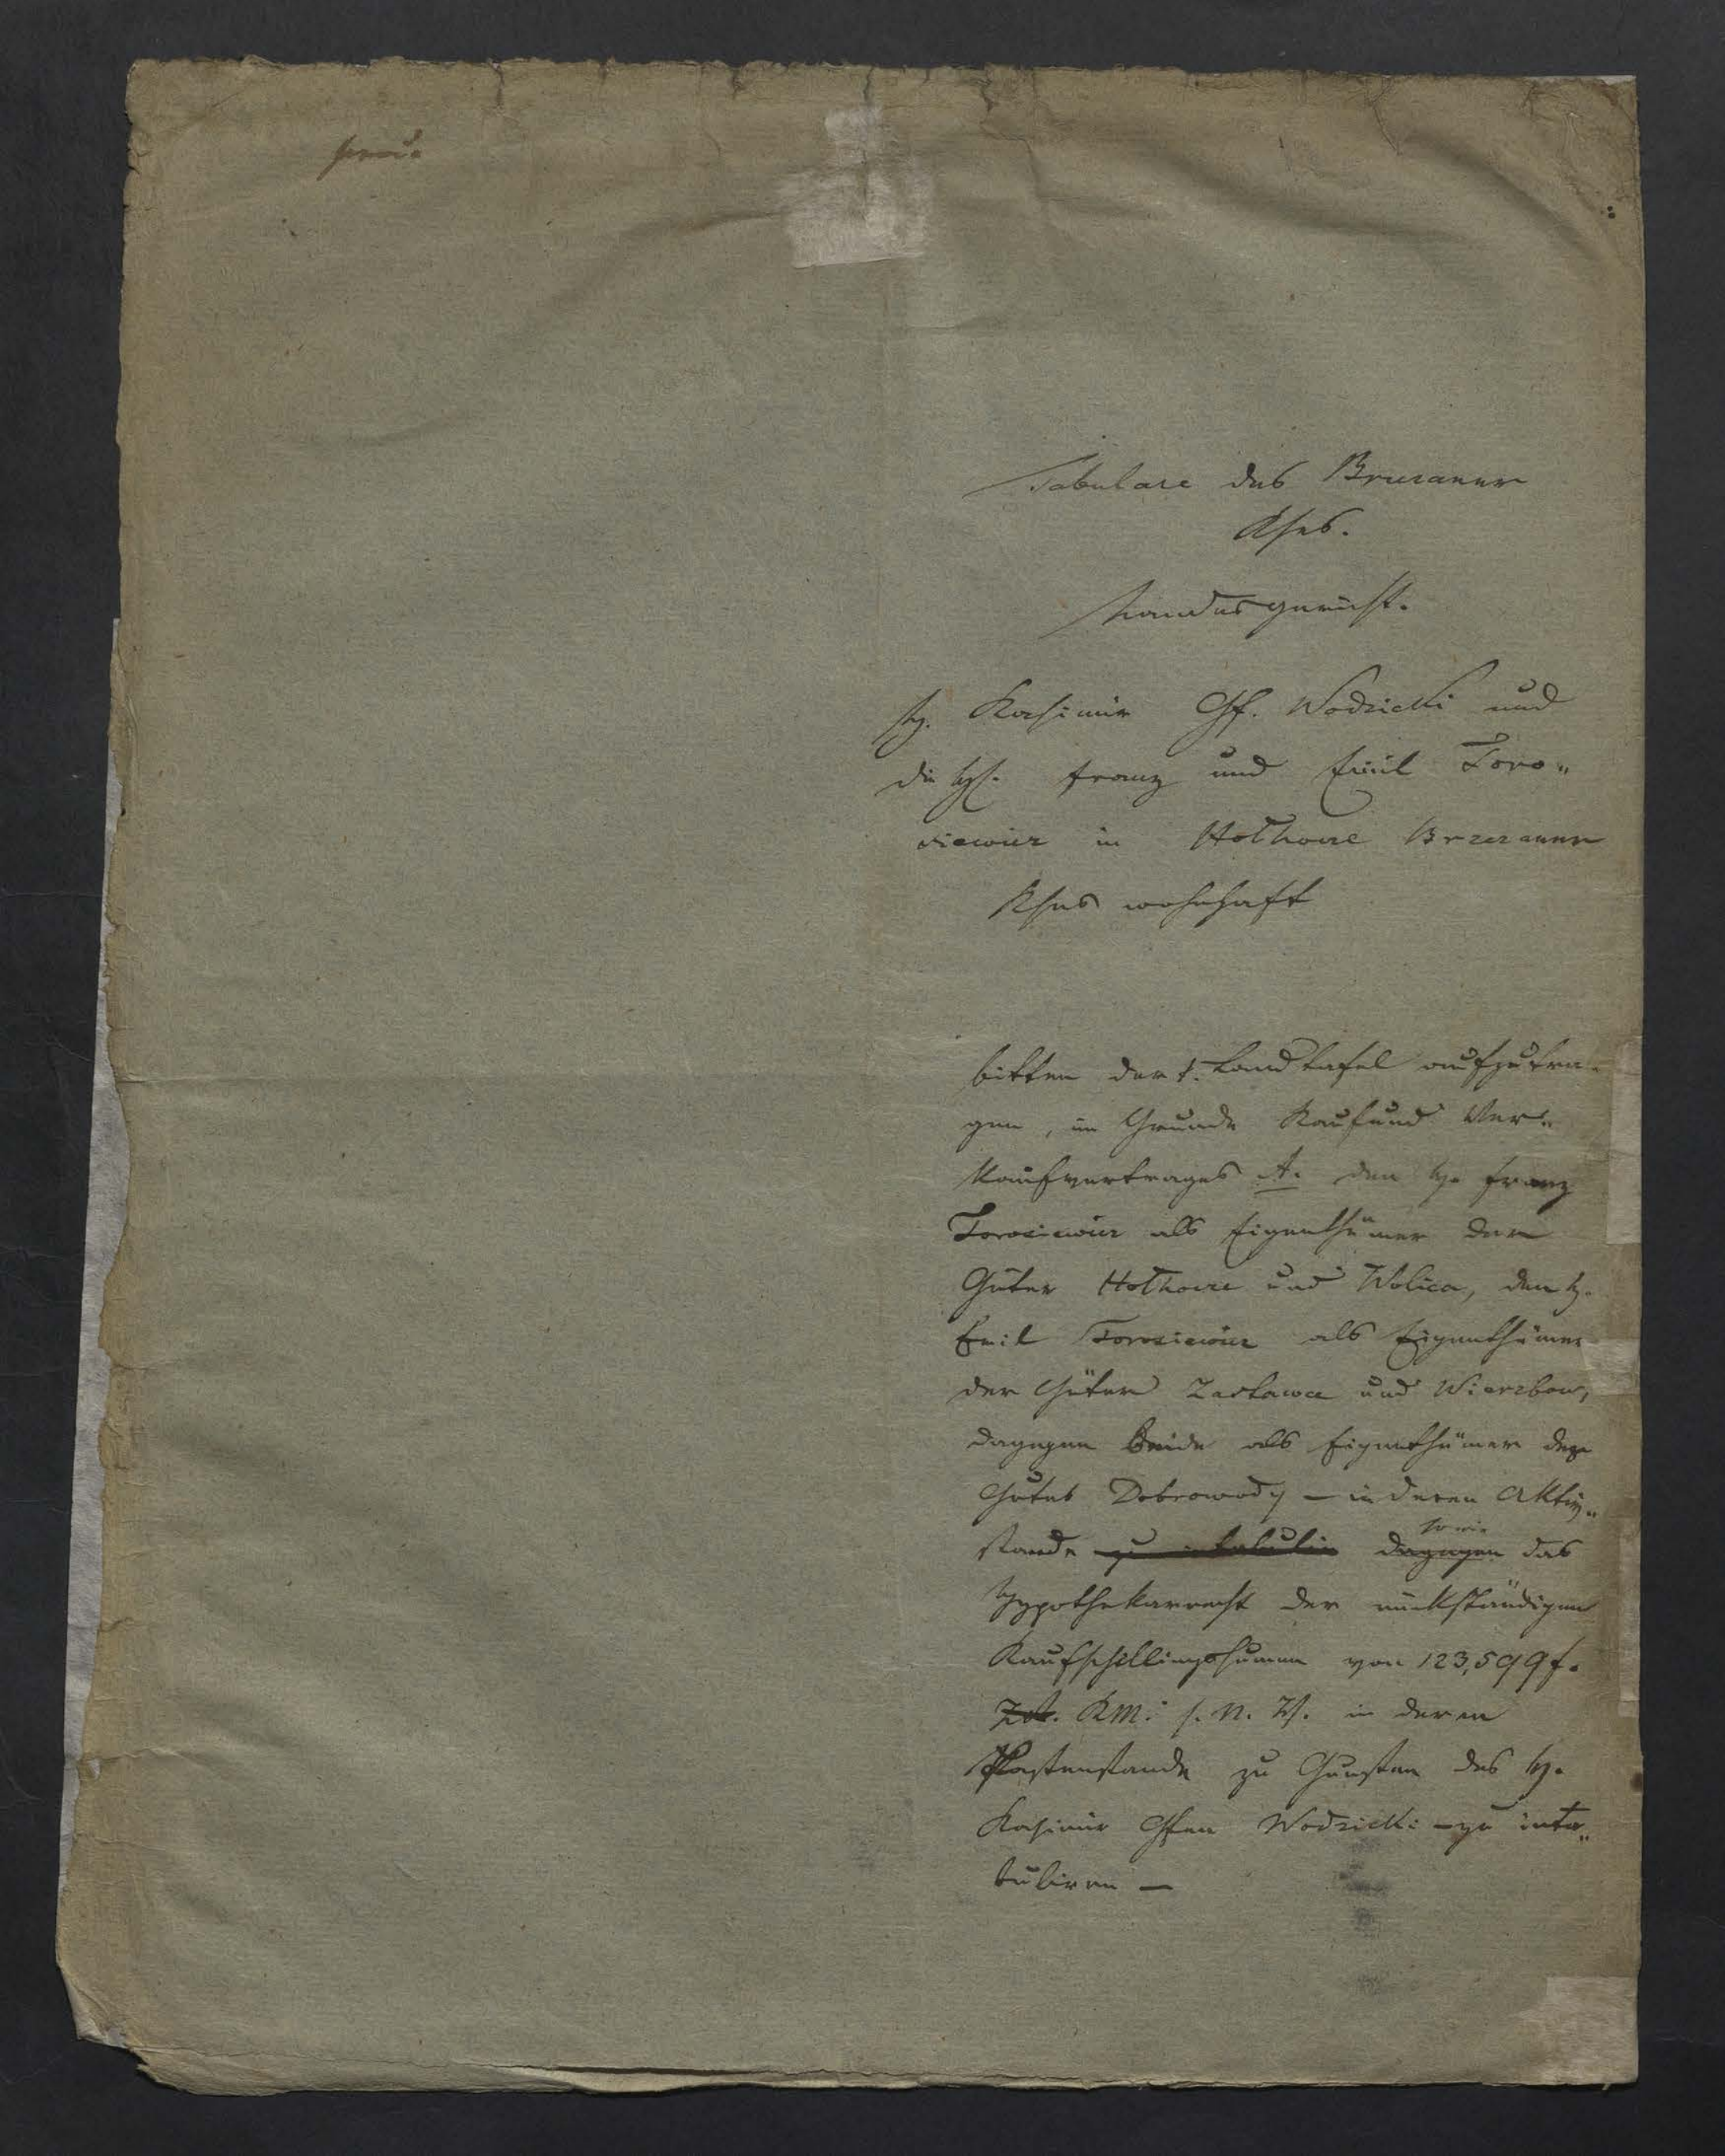 Tabulare des Brzezaner
Kses.
Landesgericht.
H. Kasimir Gf. Wodzicki und
die HH. Franz und Emil Toro„
siewicz in Hołhocze Brzezaner
Kses wohnhaft
bitten der k. Landtafel aufzutra„
gen, im Grunde Kauf und Ver„
kaufvertrages A. den H. Franz
Torosiewicz als Eigenthümer der
Güter Hołhocze und Wolica, den H.
Emil Torosiewicz als Eigenthümer
der Güter Zastawce und Wierzbow,
dagegen Beide als Eigenthümer des
Gutes Dobrowody – in deren Aktiv„
sowie
stande zu intabulin dagegen das
Hypothekarrecht der rückständigen
Kaufschillingssumme von 123,599 f.
KM. s. N. G. in deren
Lastenstande zu Gunsten des H.
Kasimir Gfen Wodzicki – zu inta„
buliren –